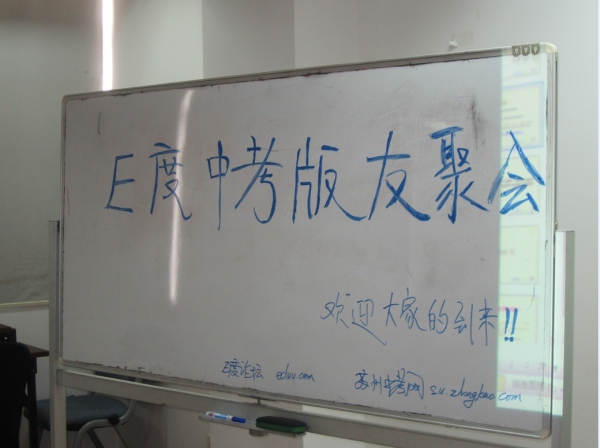 E度中考版友聚会
欢迎大家的到来!!
E度论坛 eduu.com 苏州中考网 su.zhongkao.com